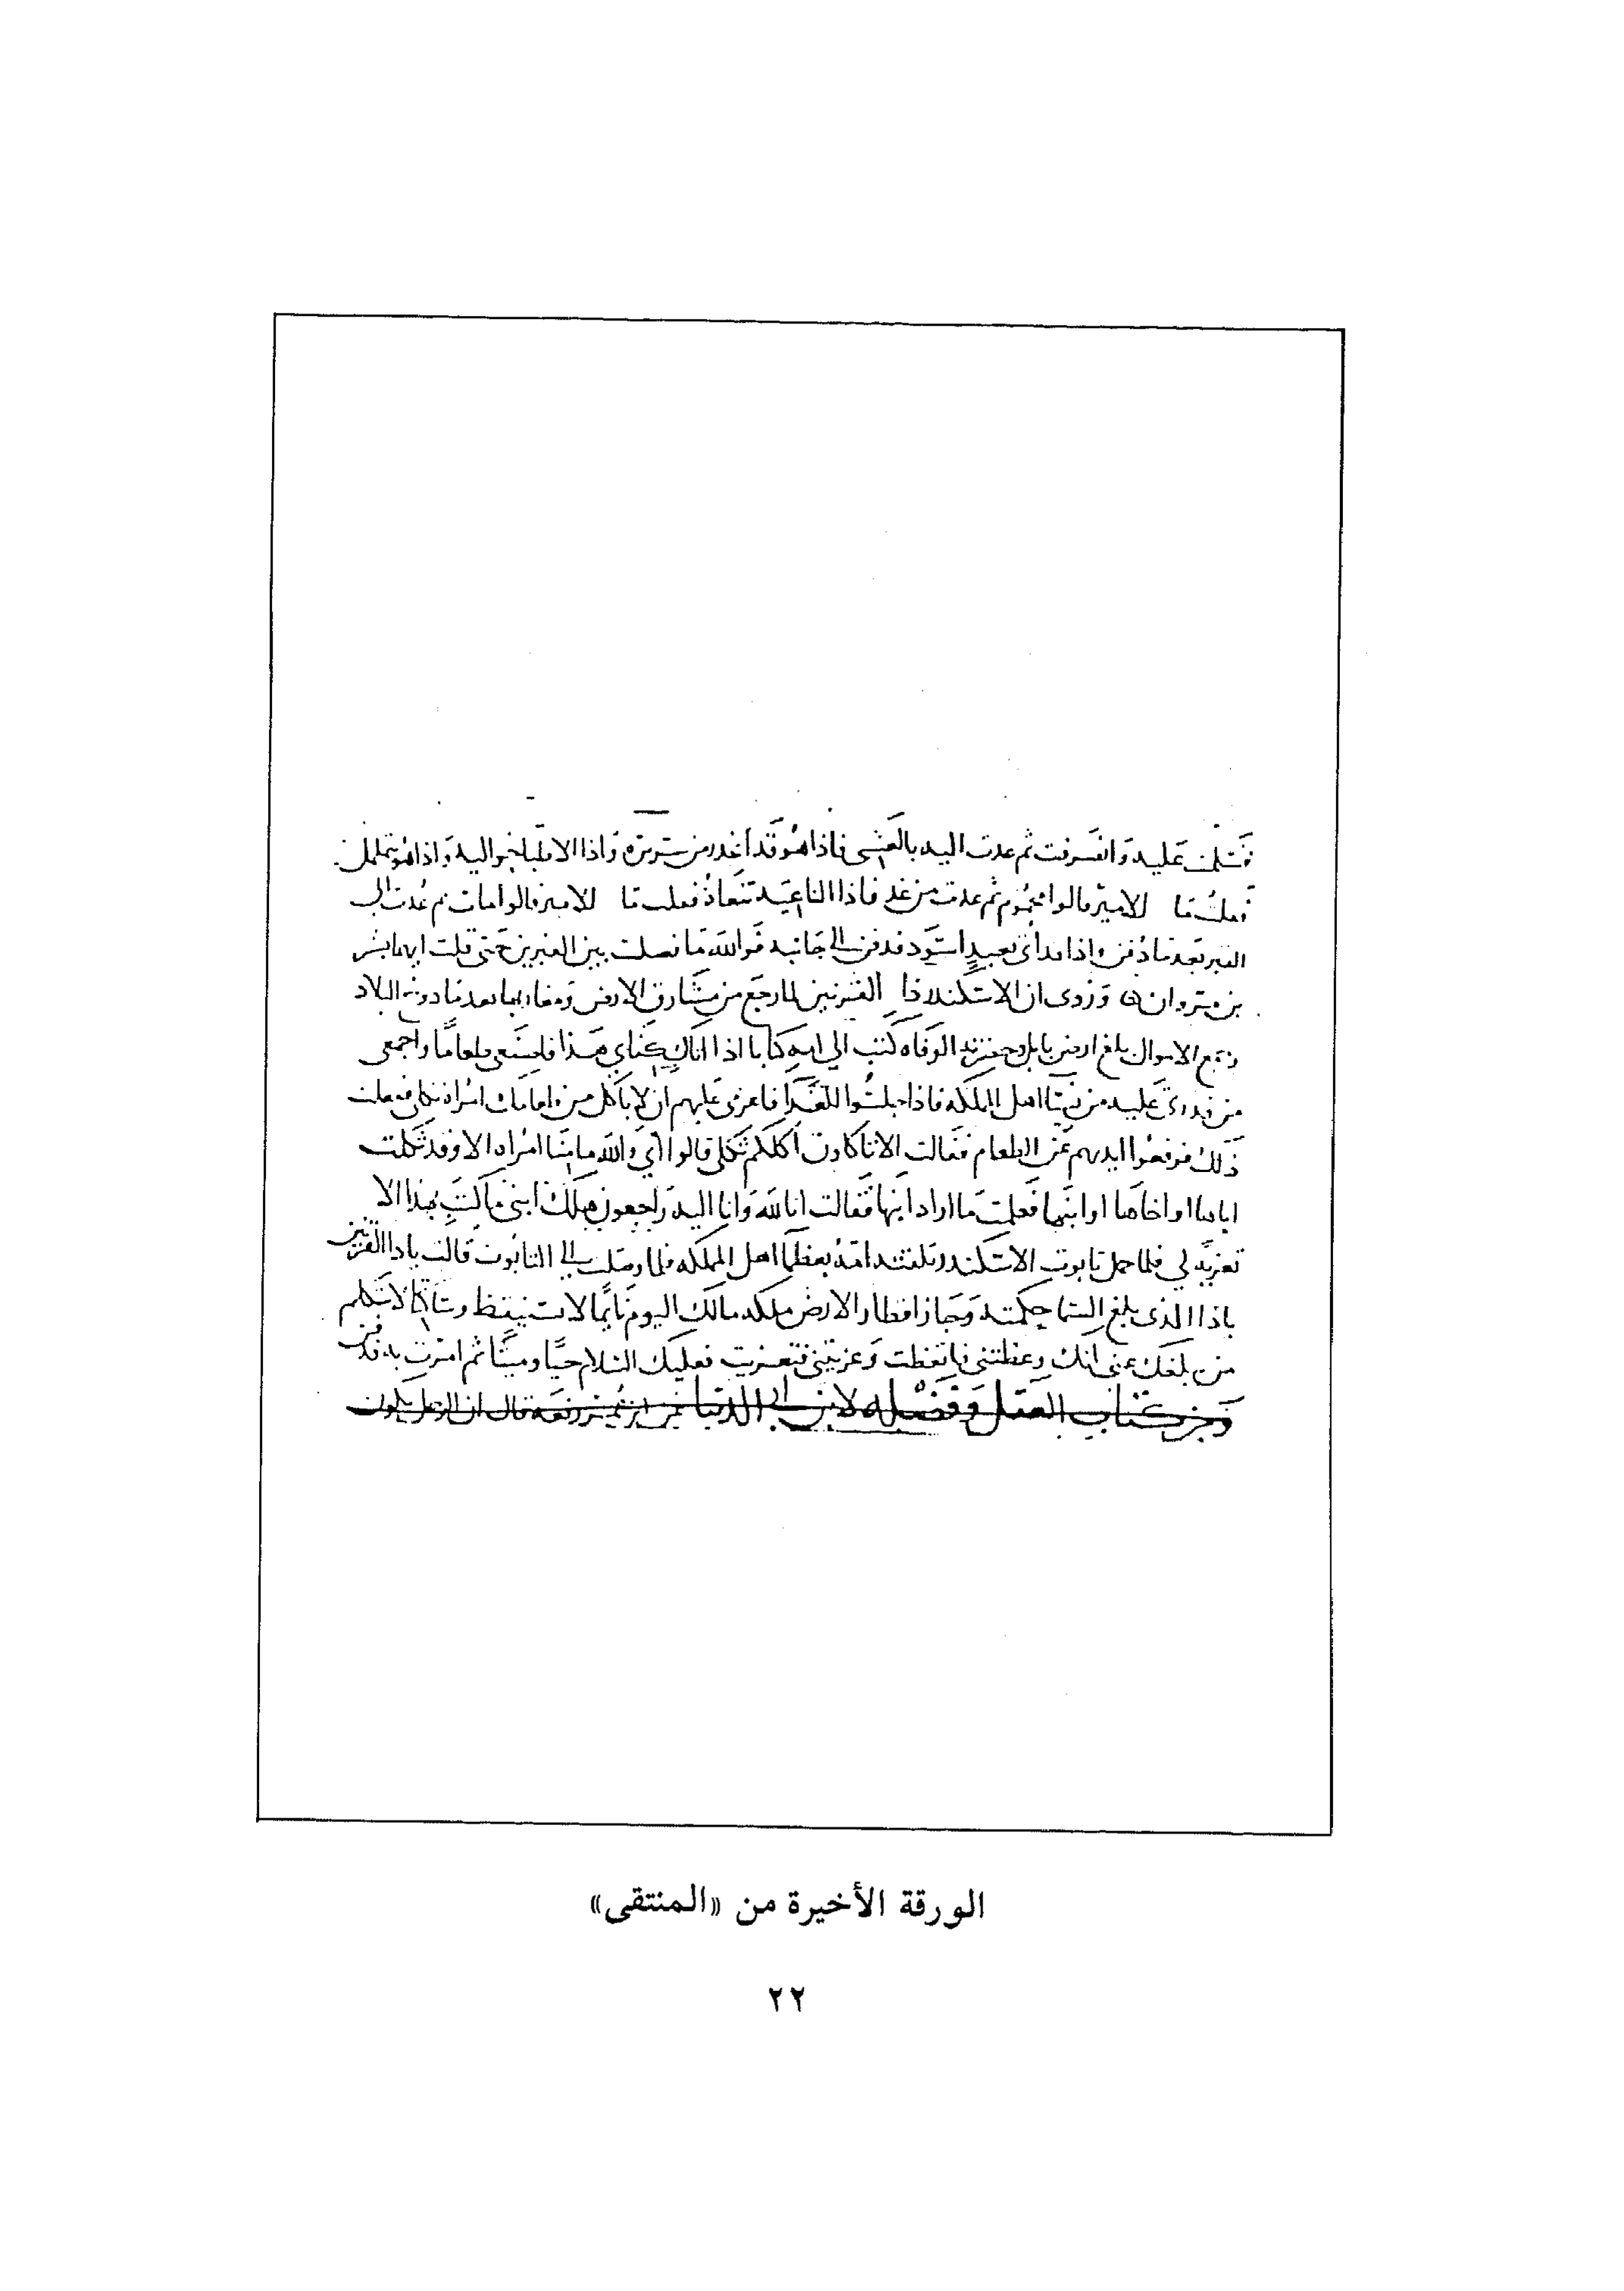 فسلمت عليه وانصرفت ثم عدت اليه بالعشي فاذا هو قد اخدر من سريره واذا الاطبا حواليه واذا هو يتململ
فقلت ما للامير قالوا محموم ثم عدت من غد فاذا الناعية تنعاه فقلت ما للامير قالوا مات ثم عدت الى
القبر بعدما دفن واذا بعبد اسود قد دفن الى جانبه فوالله ما فصلت بين القبرين حتى قلت ايهما بشر
بن مروان وروى ان الاسكندر ذا القرنين لما رجع من مشارق الارض ومغاربها بعدما دوخ البلاد
وجمع الاموال بلغ ارض بابل وحضرته الوفاه كتب الى امه كتابا اذا اتاك كتابي هذا فاصنعي طعاما واجمعي
من قدرت عليه من نسا اهل المملكه فاذا جلسوا للغدا فاعزمي عليهم ان لا ياكل من طعامك امراه ثكلى ففعلت
ذلك فرفعوا ايديهم عن الطعام فقالت الا تاكلون اكلكم ثكلى قالوا اي والله ما منا امراه الا وقد ثكلت
اباها او اخاها او ابنها فعلمت ما اراد ابنها فقالت انا لله وانا اليه راجعون هلك ابني ما كتب بهذا الا
تعزيه لي فلما حمل تابوت الاسكندر تلقته امه بعظما اهل المملكه فلما وصلت الى التابوت قالت ياذا القرنين
ياذا الذي بلغ السما حكمته وجاز اقطار الارض ملكه مالك اليوم نايما لا تستيقظ وساكتا لا تتكلم
من بلغك عني انك وعظتني فاتعظت وعزيتني فتعزيت فعليك السلام حيا وميتا ثم امرت به فدفن
ومن كتاب العقل وفضله لابن ابي الدنيا قال ان الرجل ليكون
الورقة الأخيرة من «المنتقى»
٢٢